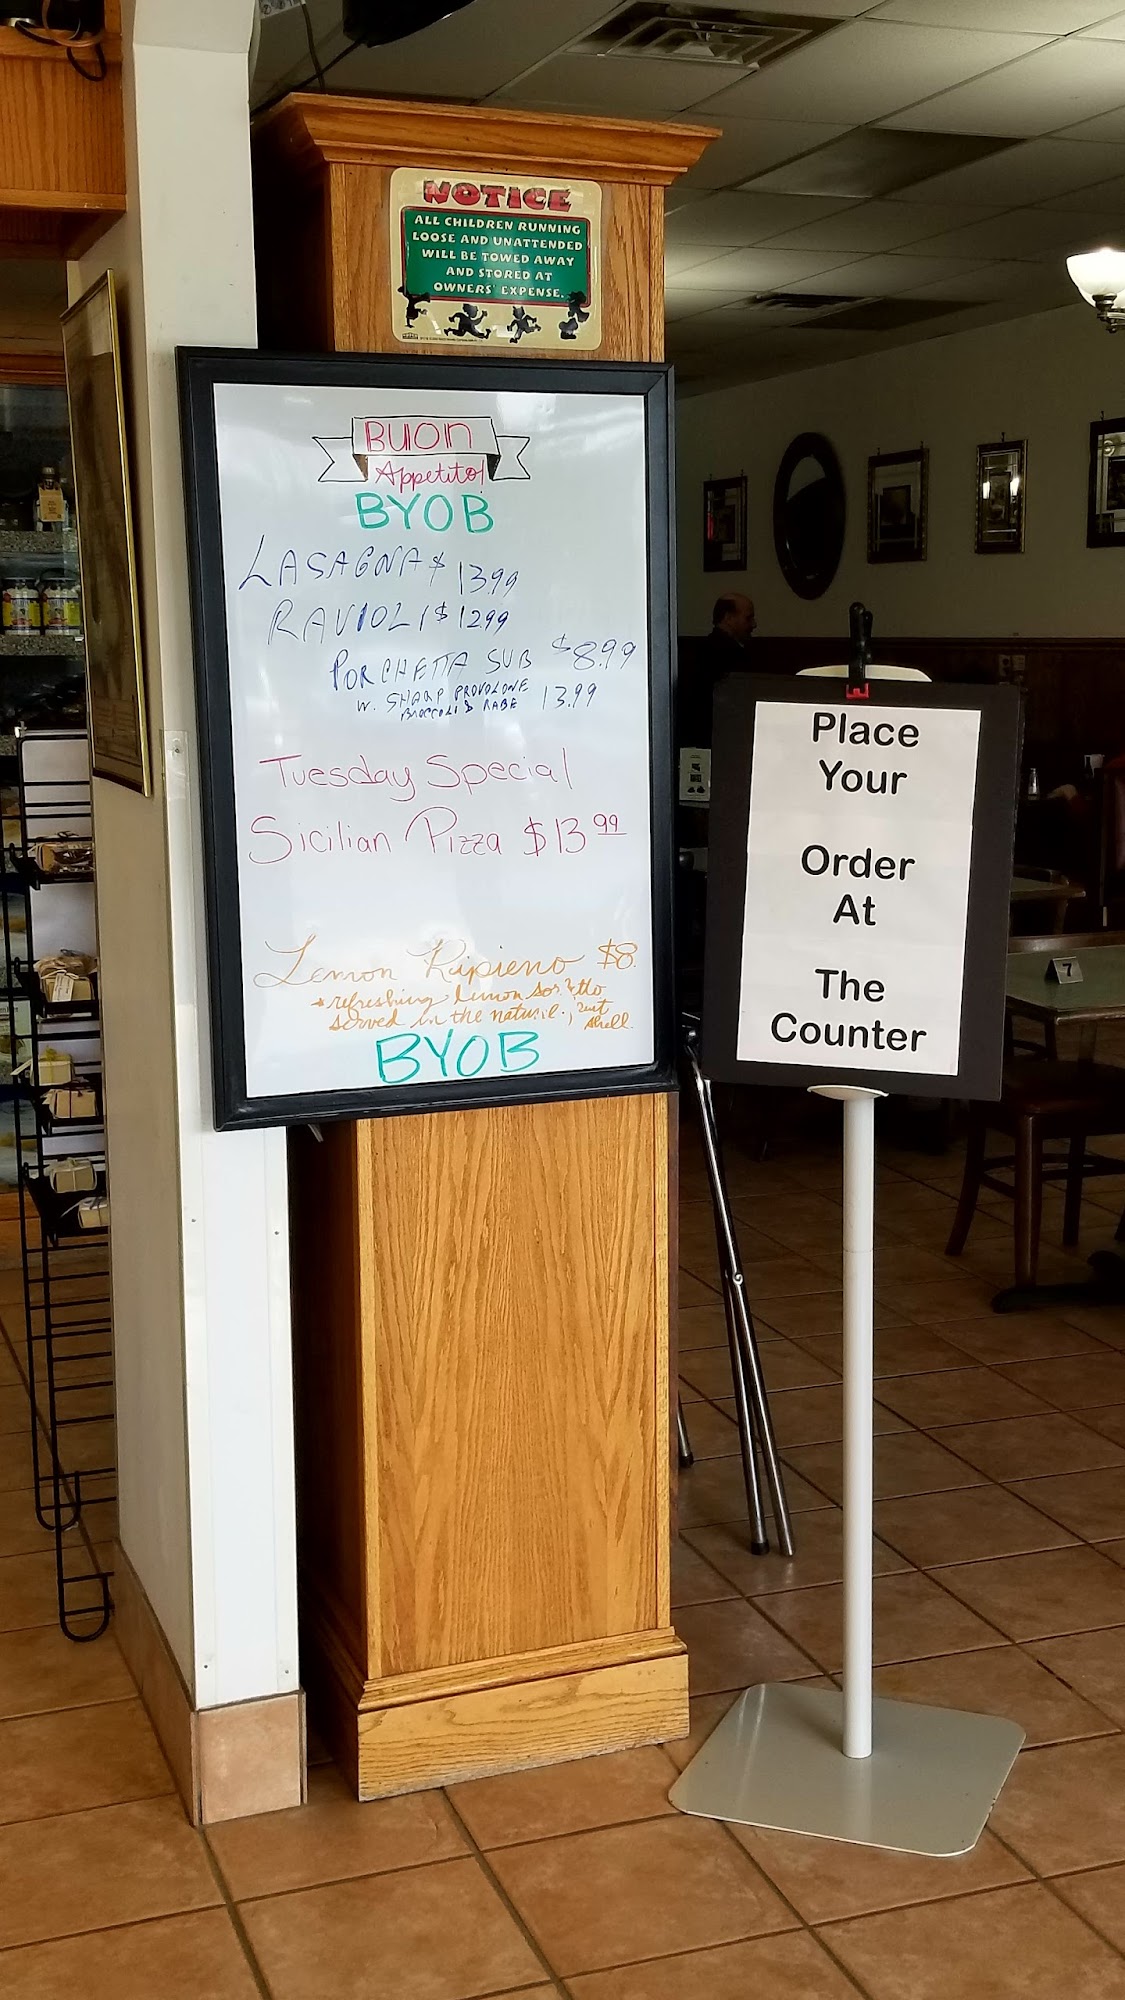 NOTICE
ALL CHILDREN RUNNING
LOOSE AND UNATTENDED
WILL BE TOWED AWAY
AND STORED AT
OWNERS' EXPENSE.
BUON
Appetito!
BYOB
LASAGNA $ 13.99
RAVIOLI $ 12.99
PORCHETTA SUB $8.99
W. SHARP PROVOLONE
BROCCOLI RABE 13.99
Tuesday Special
Sicilian Pizza $13 99
Lemon Ripieno $8
refreshing lemon
served in the fruit
shell.
BYOB
Place
Your
Order
At
The
Counter
7